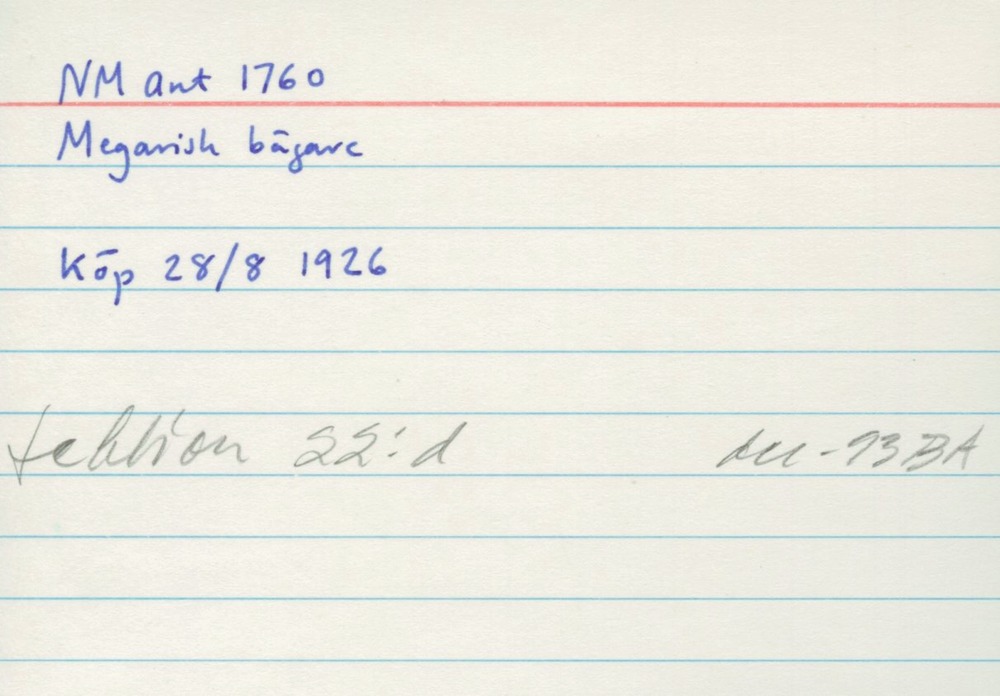 NM ant 1760
Megarisk bägare
Köp 28/8 1926
sektion 22:d dec-93 BA